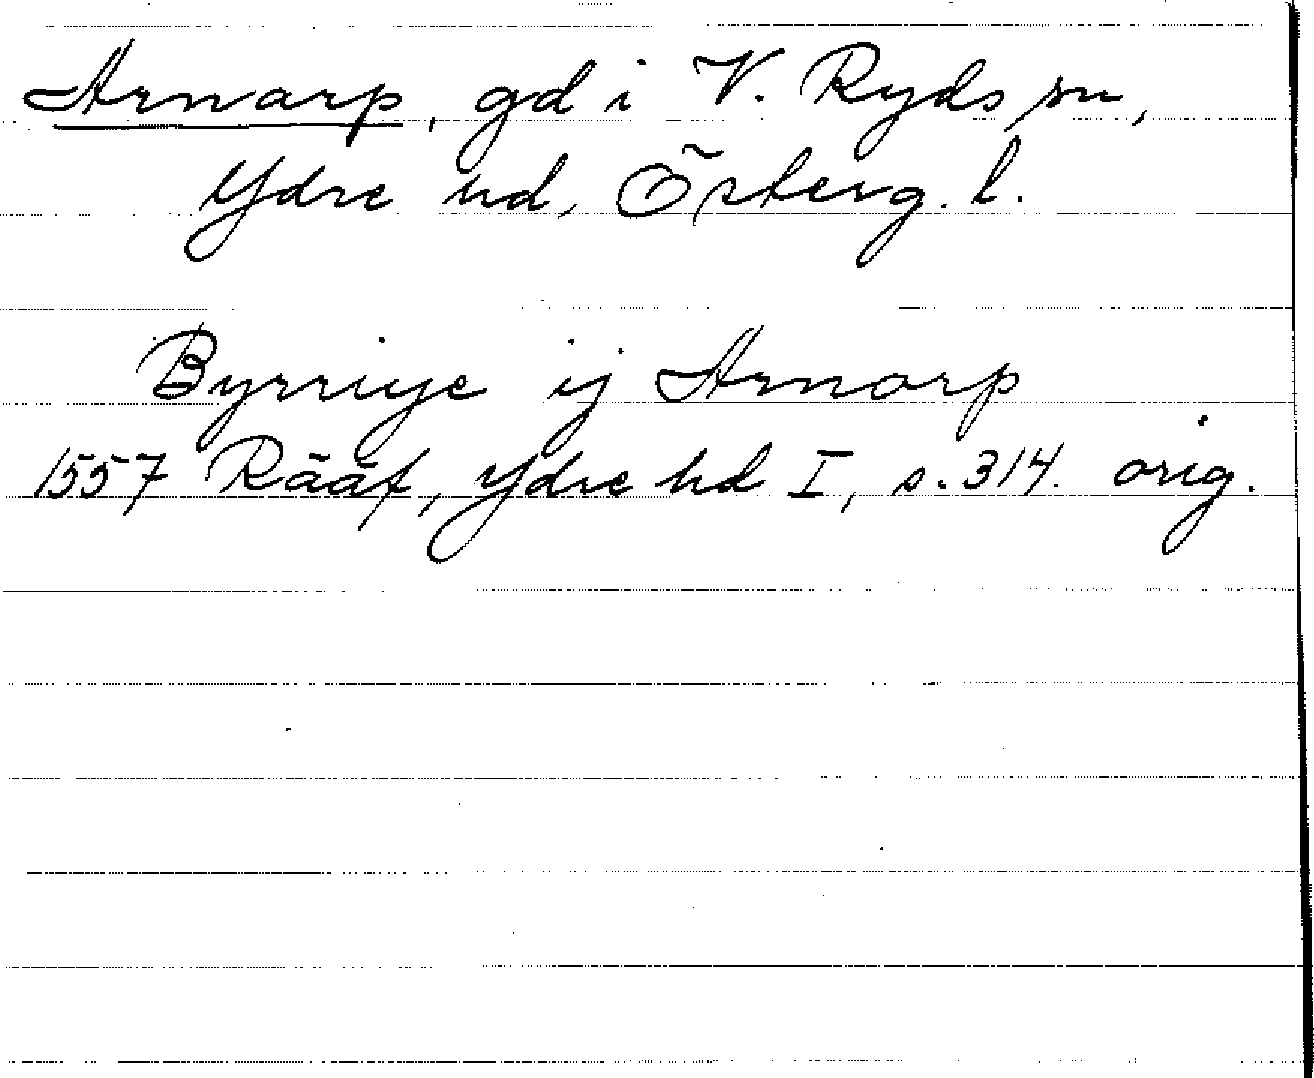 Arnarp, gd i V. Ryds sn,
Ydre hd, Österg. l.
Byrriye ij Arnorp
1557 Rääf, Ydre hd I, s. 314. orig.